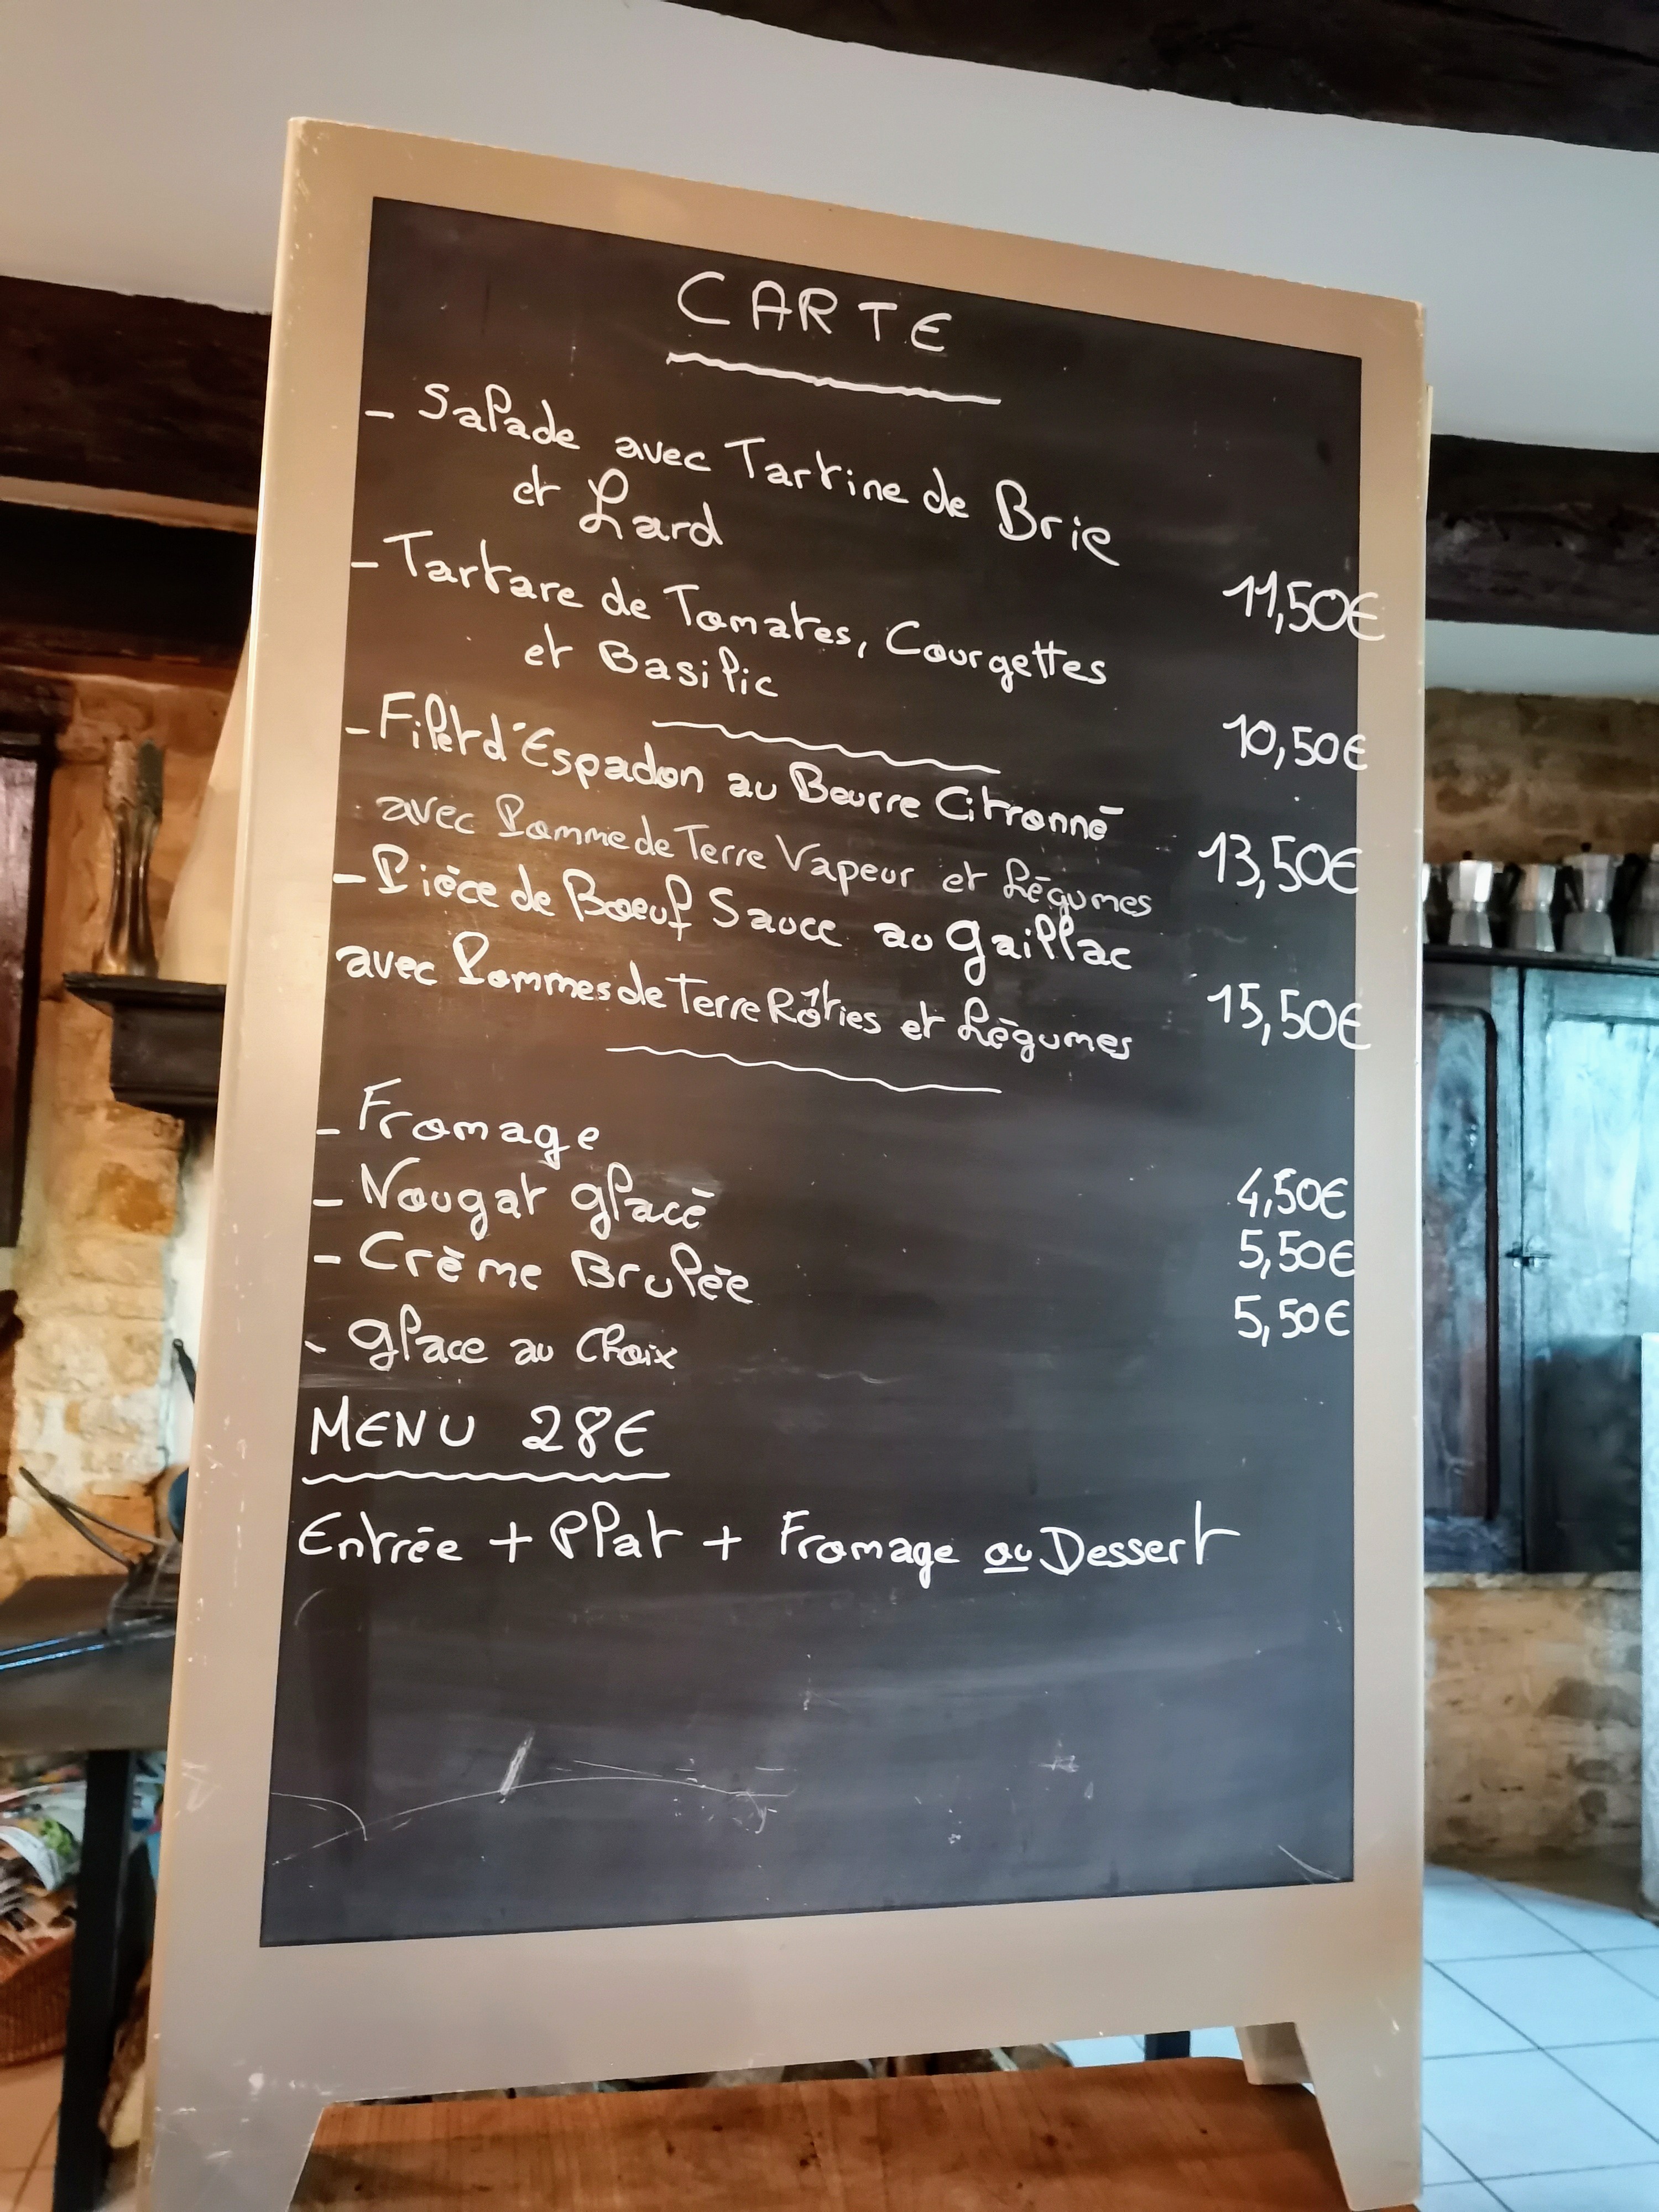 CARTE
- Salade avec Tartine de Brie
et Lard 11,50€
- Tartare de Tomates, Courgettes
et Basilic 10,50€
- Filet d'Espadon au Beurre Citronné
avec Pomme de Terre Vapeur et Légumes 13,50€
- Pièce de Boeuf Sauce au Gaillac
avec Pommes de Terre Rôties et Légumes 15,50€
- Fromage 4,50€
- Nougat Glacé 5,50€
- Crème Brulée 5,50€
- Glace au Choix
MENU 28€
Entrée + Plat + Fromage ou Dessert